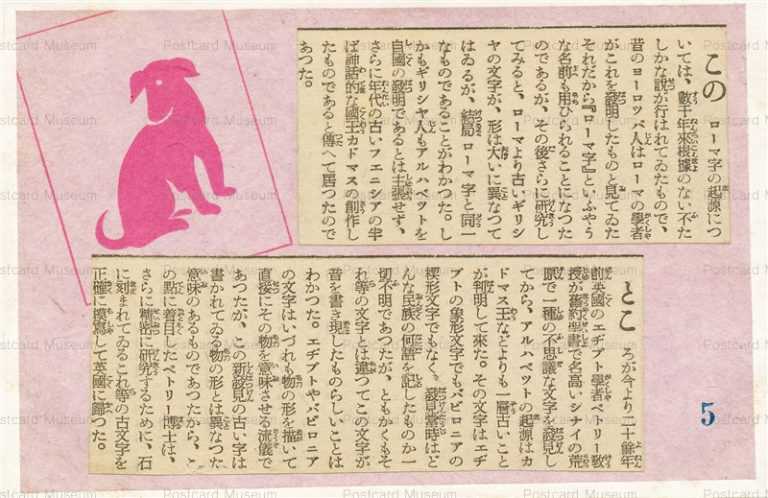 この ローマ字の起源につ
いては、數千年來根據のない不た
しかな説が行はれてゐたもので、
昔のヨーロツパ人はローマの學者
がこれを發明したものと見てゐた
それだから『ローマ字』といふやう
な名前も用ひられることになつた
のであるが、その後さらに研究し
てみると、ローマより古いギリシ
ヤの文字が、形は大いに異なつて
はゐるが、結局ローマ字と同一
なものであることがわかつた。し
かもギリシヤ人もアルハベツトを
自國の發明であるとは主張せず、
さらに年代の古いフエニシアの半
ば神話的な國王カドマスの創作し
たものであると傳へて居つたので
あつた。
ところが今より二十餘年
前英國のエヂプト學者ペトリー敎
授が舊約聖書で名高いシナイの荒
原で一種の不思議な文字を發見し
てから、アルハベツトの起源はカ
ドマス王などよりも一層古いこと
が判明して來た。その文字はエヂ
プトの象形文字でもバビロニアの
楔形文字でもなく、發見當時はど
んな民族の何語を記したものか一
切不明であつたが、ともかくもそ
れ等の文字とは違つてこの文字が
音を書き現したものらしいことは
わかつた。エヂプトやバビロニア
の文字はいづれも物の形を描いて
直接にその物を意味させる流儀で
あつたが、この新發見の古い字は
書かれてゐる物の形とは異なつた
意味のあるものであつたから、こ
の點に着目したペトリー博士は、
さらに精密に研究するために、石
に刻まれてゐるこれ等の古文字を
正確に摸寫して英國に歸つた。
5
Postcard Museum